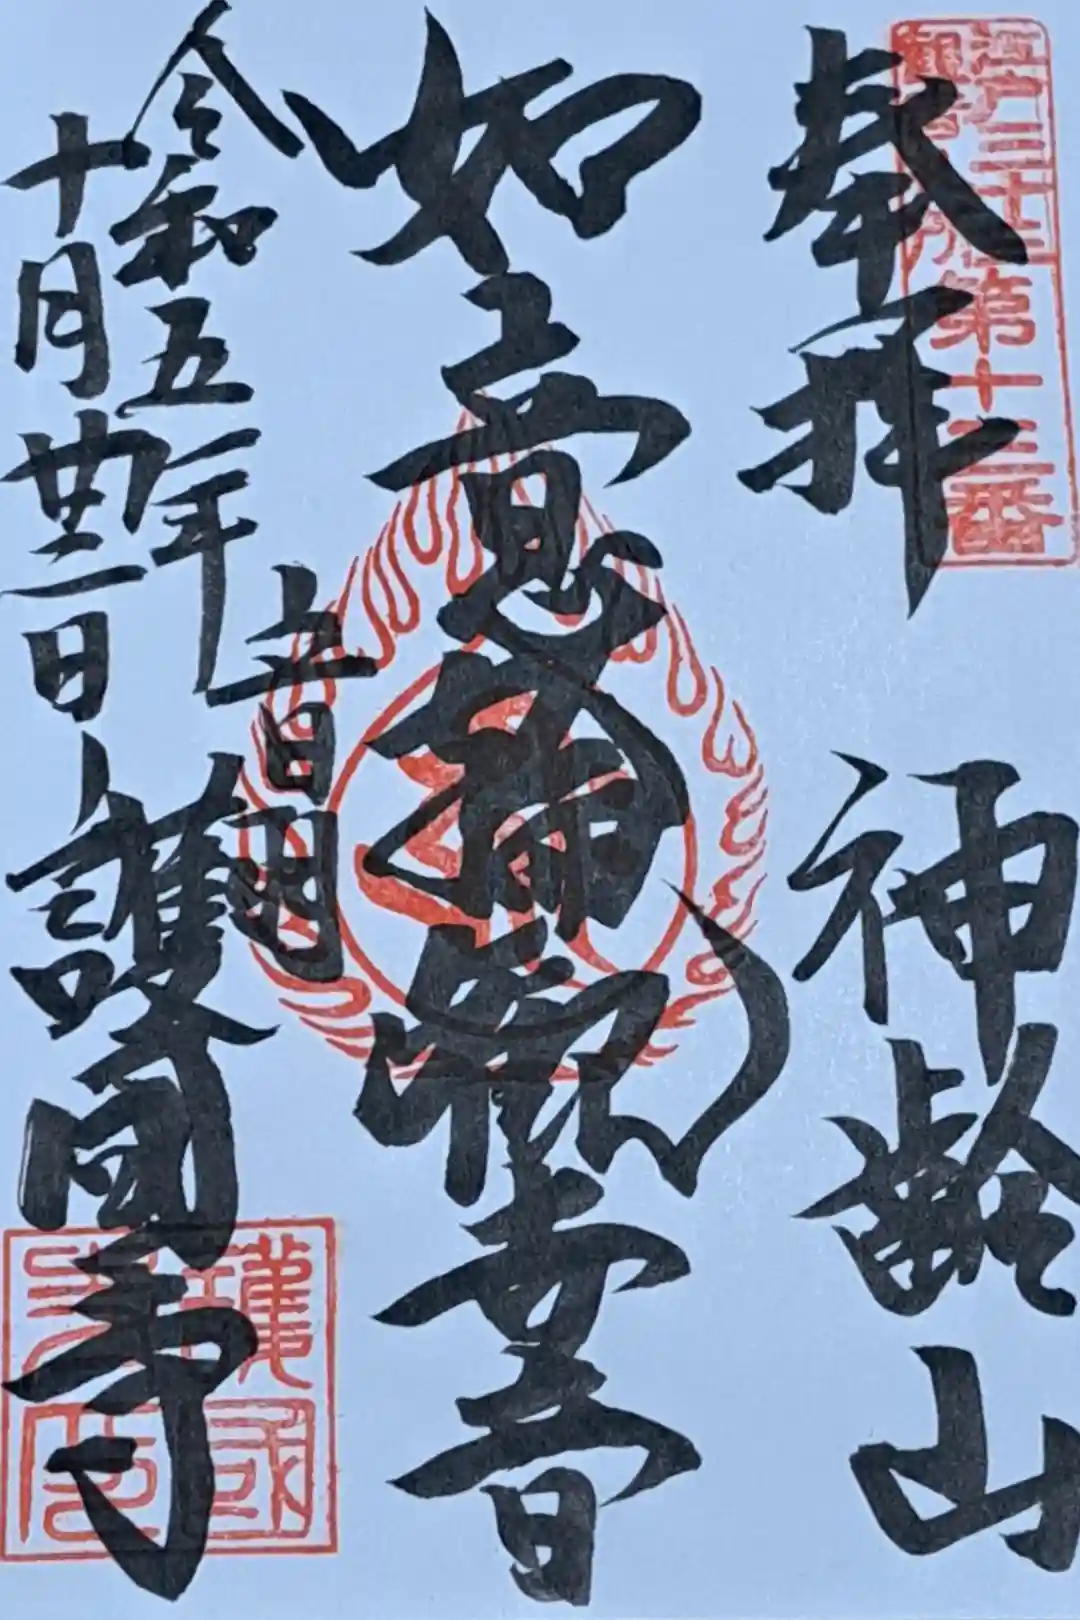 江戸三十三
観音札所
第十三番
奉拝 神齢山
如意輪観世音
令和五年
十月廿二日
音羽
護国寺